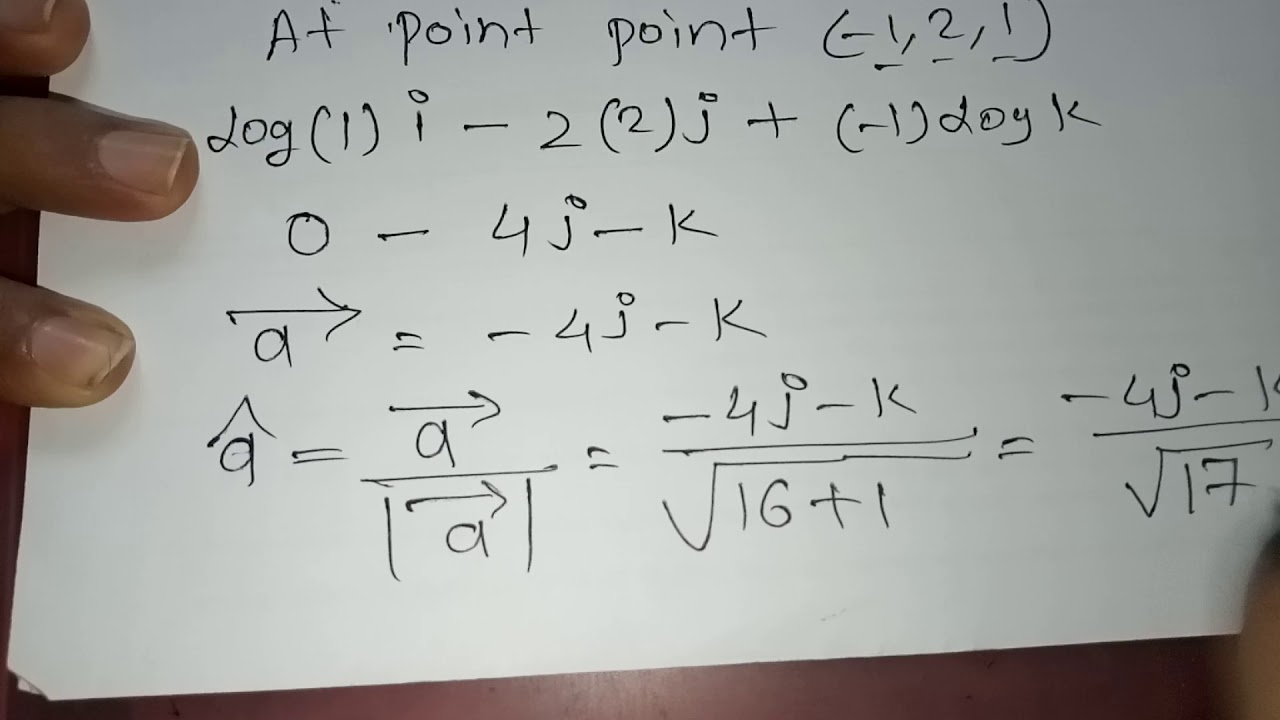 At point point (-1, 2, 1)
log(1) i - 2(2)j + (-1) log k
0 - 4j - k
a⃗ = - 4j - k
â = a⃗ / |a⃗| = -4j - k / √16+1 = -4j - k / √17